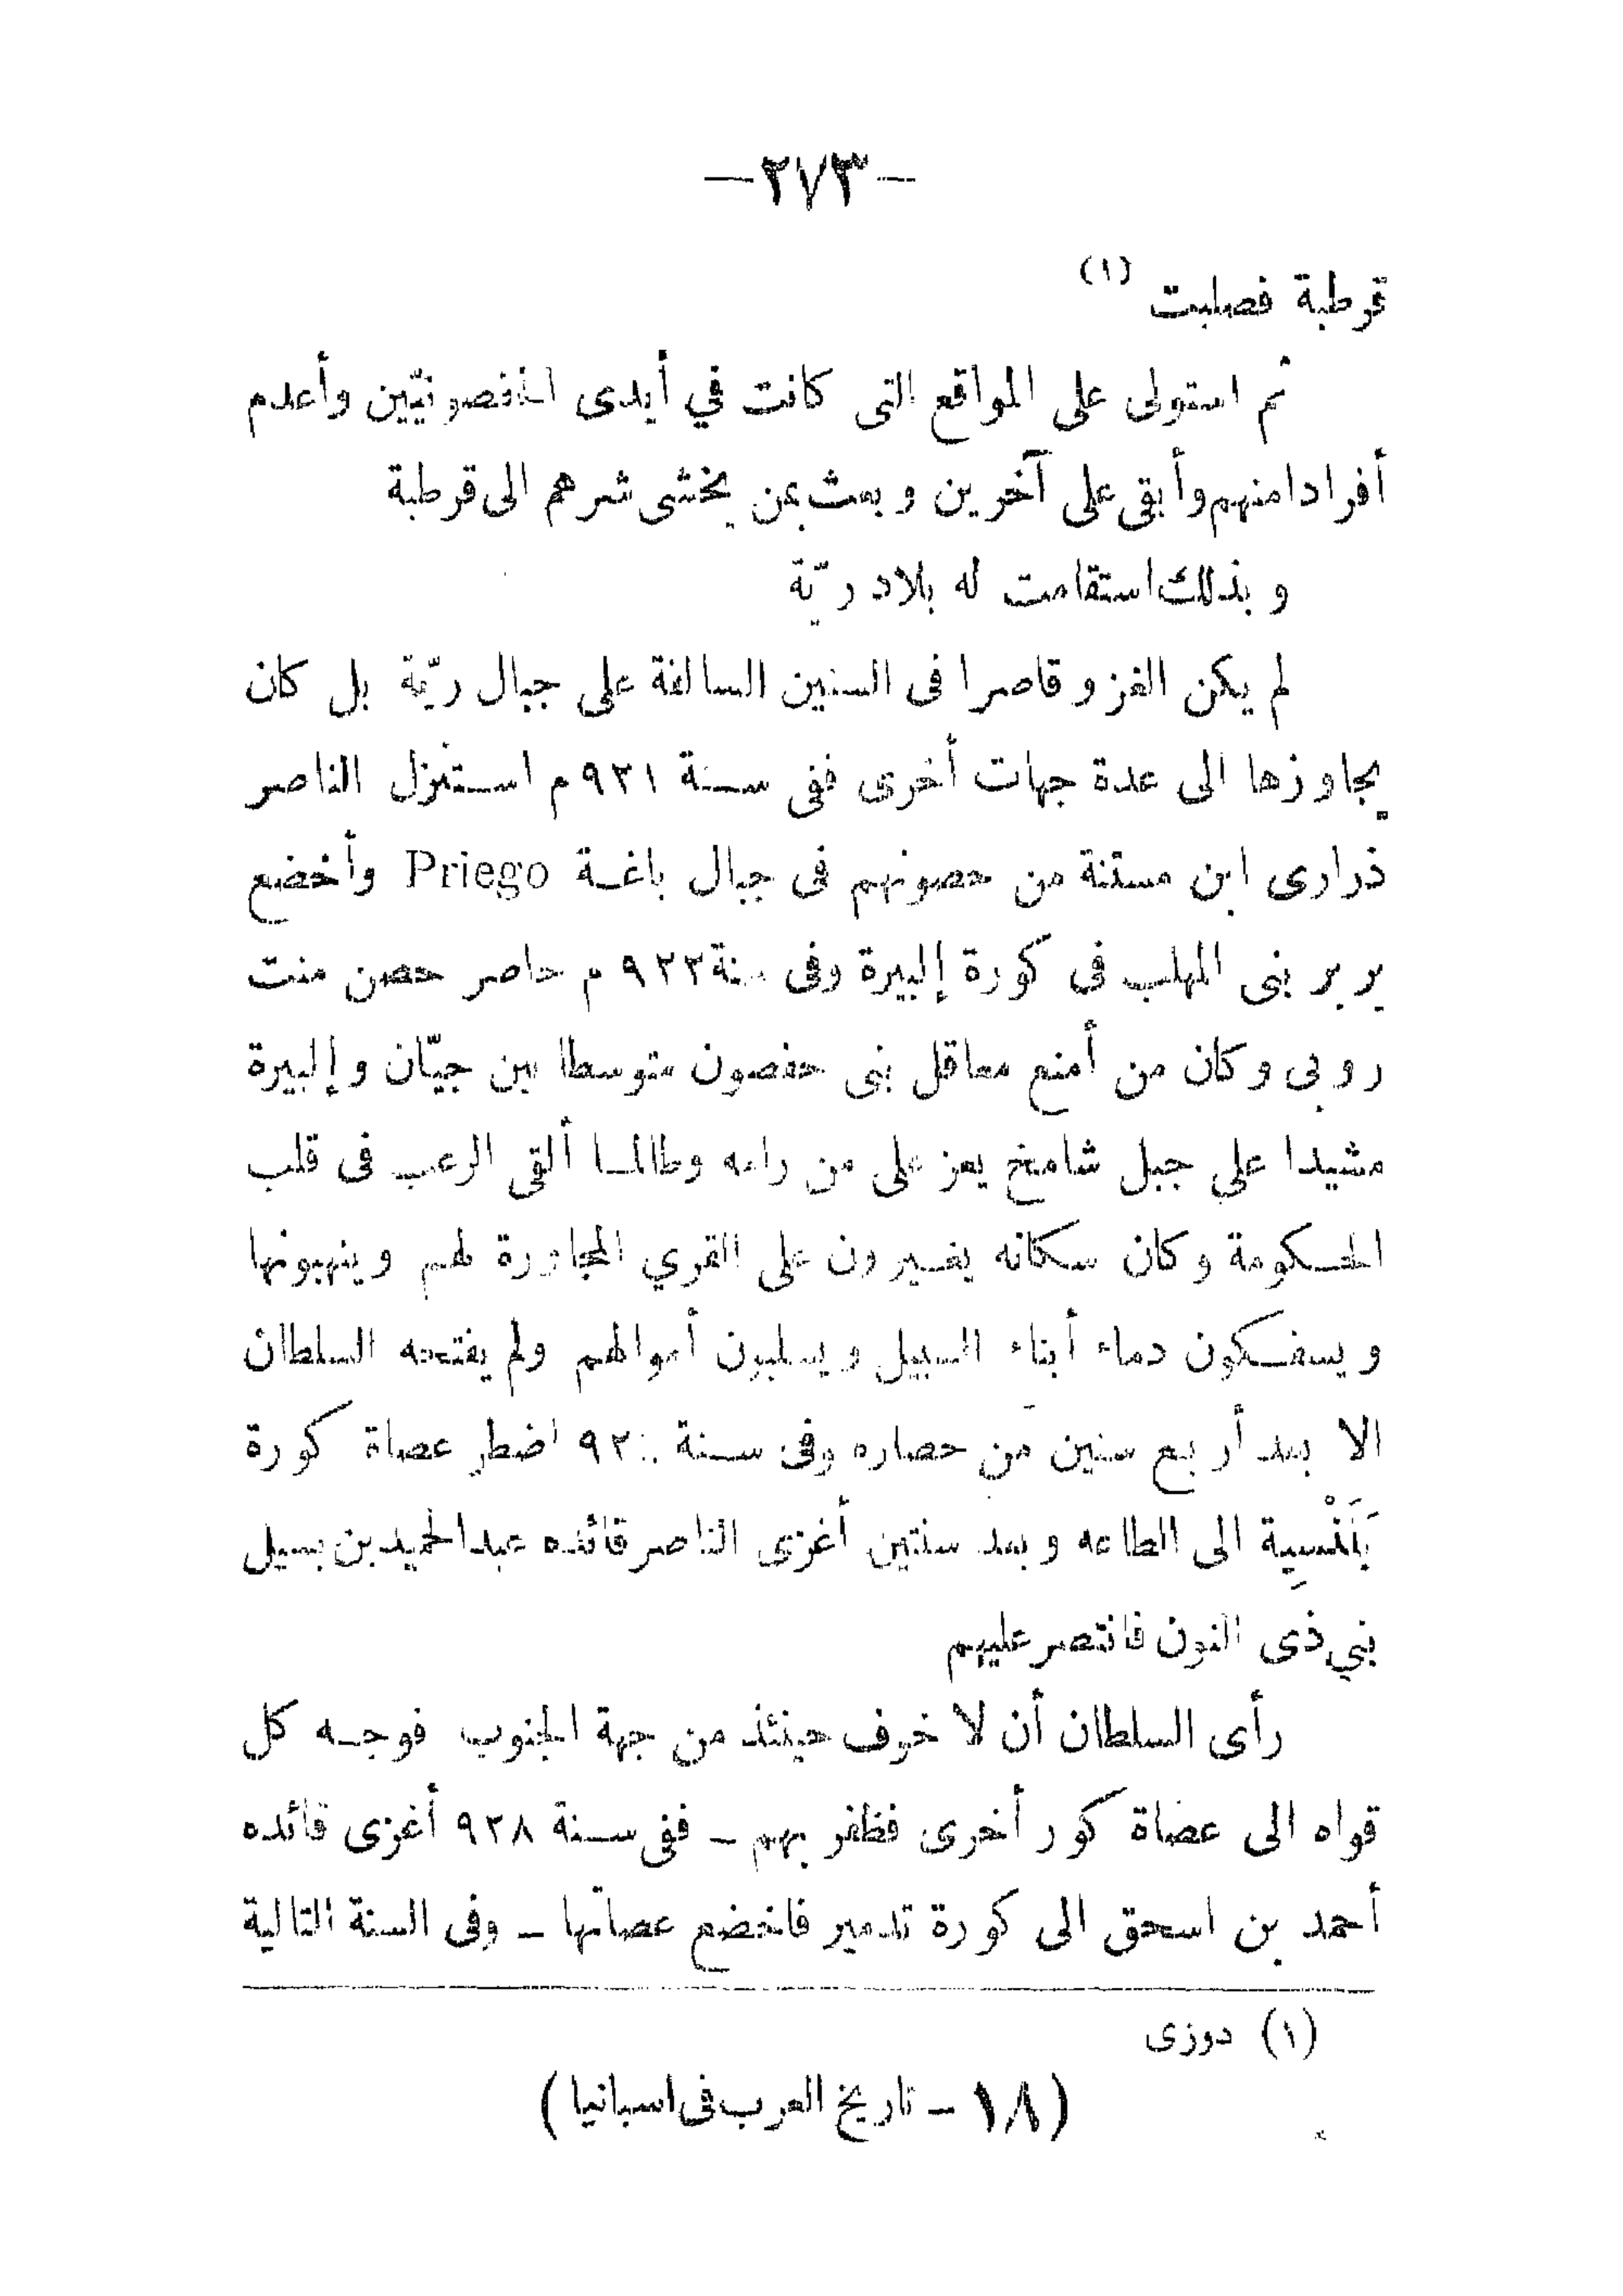 —٢٧٣—
قرطبة فصلبت (١)
ثم استولى على المواقع التى كانت في أيدى الحفصونيّين وأعدم
أفرادا منهم وأبقى على آخرين وبعث بمن يخشى شرهم الى قرطبة
وبذلك استقامت له بلاد ريّة
لم يكن الغزو قاصرا فى السنين السالفة على جبال ريّة بل كان
يجاوزها الى عدة جهات أخرى ففى سنة ٩٢١ م استنزل الناصر
ذرارى ابن مستنة من حصونهم فى جبال باغة Priego وأخضع
بربر بنى المهلب فى كورة إلبيرة وفى سنة ٩٢٢ م حاصر حصن منت
روبى وكان من أمنع معاقل بنى حفصون متوسطا بين جيّان وإلبيرة
مشيدا على جبل شامخ يعز على من رامه وطالما ألقى الرعب فى قلب
الحكومة وكان سكانه يغيرون على القري المجاورة لهم وينهبونها
ويسفكون دماء أبناء السبيل ويسلبون أموالهم ولم يفتتحه السلطان
الا بعد أربع سنين من حصاره وفى سنة اضطر عصاة كورة
بَلَنْسِية الى الطاعه وبعد سنتين أغزى الناصر قائده عبد الحميد بن بسيل
بني ذى النون فانتصر عليهم
رأى السلطان أن لا خوف حينئذ من جهة الجنوب فوجه كل
قواه الى عصاة كور أخرى فظفر بهم – ففى سنة ٩٢٨ أغزى قائده
أحمد بن اسحق الى كورة تدمير فاخضع عصاتها – وفى السنة التالية
(١) دوزى
(١٨ – تاريخ العرب فى اسبانيا)